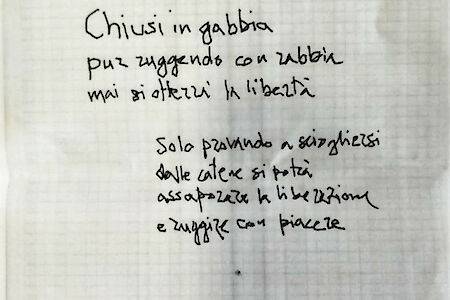 Chiusi in gabbia
pur ruggendo con rabbia
mai si otterrà la libertà
Solo provando a sciogliersi
dalle catene si potrà
assaporare la liberazione
e ruggire con piacere